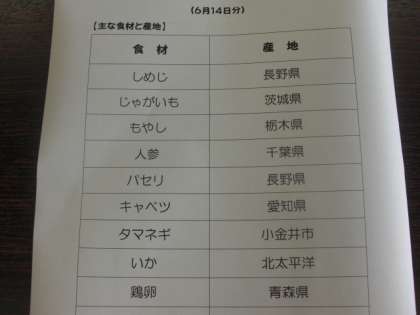 (6月14日分)
【主な食材と産地】
食材 産地
しめじ 長野県
じゃがいも 茨城県
もやし 栃木県
人参 千葉県
パセリ 長野県
キャベツ 愛知県
タマネギ 小金井市
いか 北太平洋
鶏卵 青森県